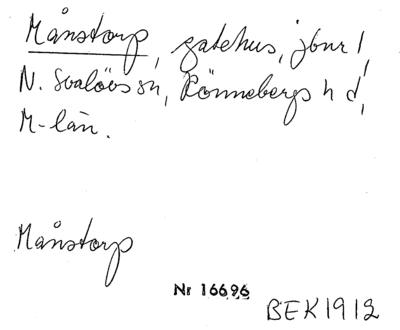 Månstorp, gatehus, jbnr 1,
N. Svalövs sn, Rönnebergs h d,
M-län.
Månstorp
Nr 16696
BEK 1912